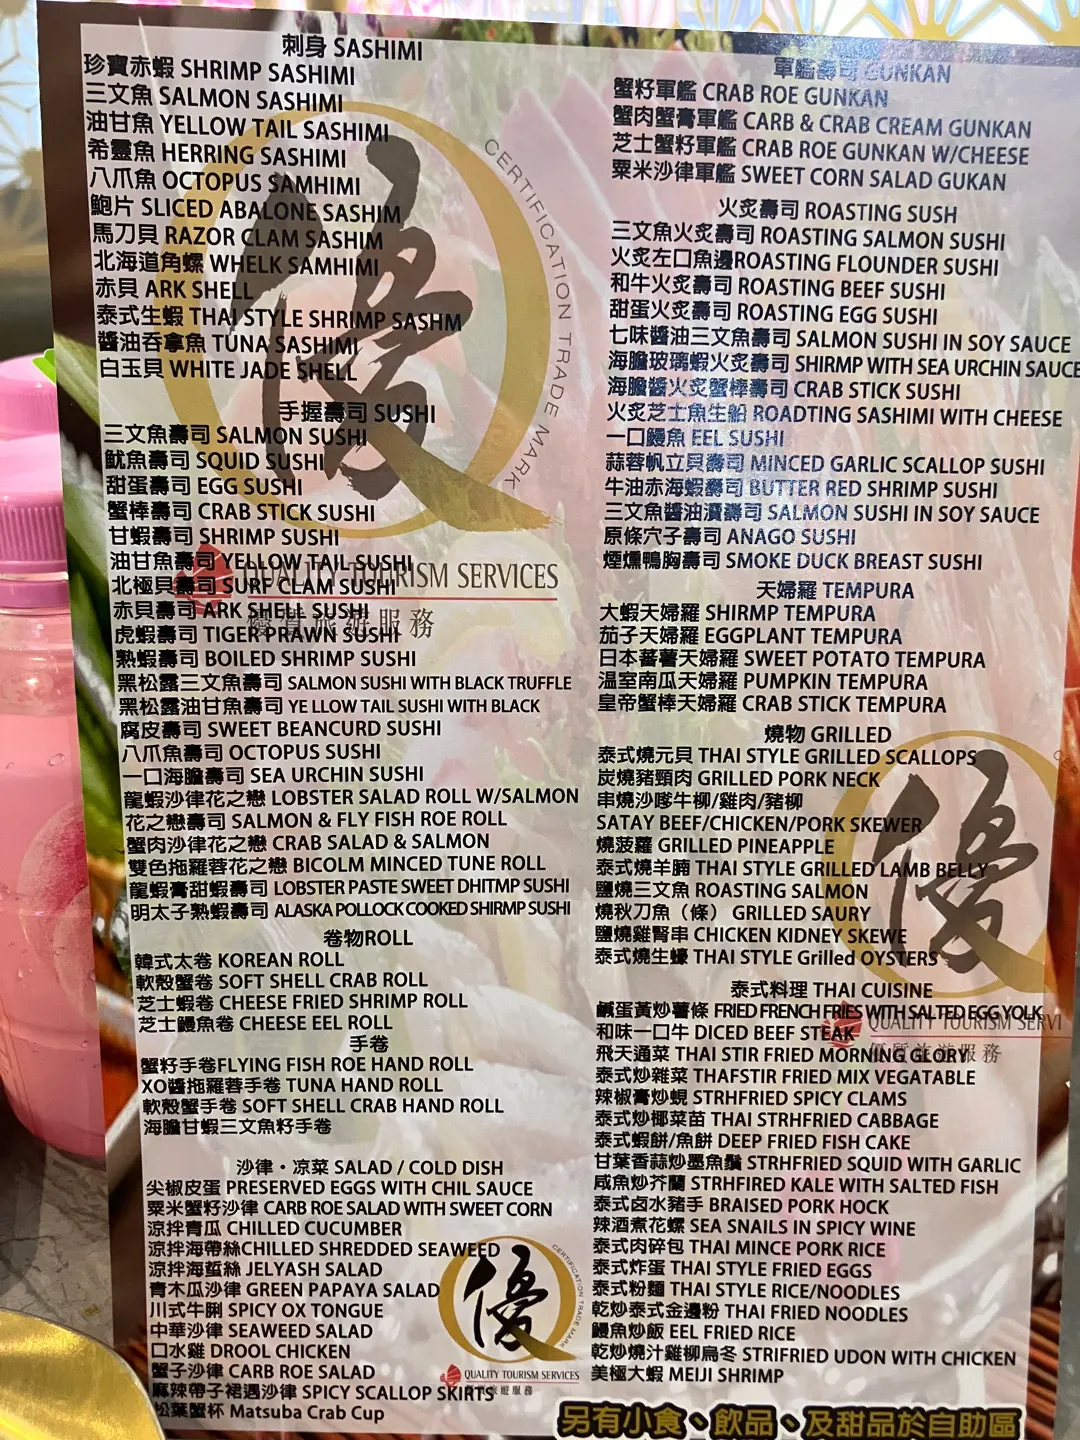 刺身 SASHIMI
珍寶赤蝦 SHRIMP SASHIMI
三文魚 SALMON SASHIMI
油甘魚 YELLOW TAIL SASHIMI
希靈魚 HERRING SASHIMI
八爪魚 OCTOPUS SAMHIMI
鮑片 SLICED ABALONE SASHIM
馬刀貝 RAZOR CLAM SASHIM
北海道角螺 WHELK SAMHIMI
赤貝 ARK SHELL
泰式生蝦 THAI STYLE SHRIMP SASHM
醬油吞拿魚 TUNA SASHIMI
白玉貝 WHITE JADE SHELL
手握壽司 SUSHI
三文魚壽司 SALMON SUSHI
魷魚壽司 SQUID SUSHI
甜蛋壽司 EGG SUSHI
蟹棒壽司 CRAB STICK SUSHI
甘蝦壽司 SHRIMP SUSHI
油甘魚壽司 YELLOW TAIL SUSHI
北極貝壽司 SURF CLAM SUSHI
赤貝壽司 ARK SHELL SUSHI
虎蝦壽司 TIGER PRAWN SUSHI
熟蝦壽司 BOILED SHRIMP SUSHI
黑松露三文魚壽司 SALMON SUSHI WITH BLACK TRUFFLE
黑松露油甘魚壽司 YE LLOW TAIL SUSHI WITH BLACK
腐皮壽司 SWEET BEANCURD SUSHI
八爪魚壽司 OCTOPUS SUSHI
一口海膽壽司 SEA URCHIN SUSHI
龍蝦沙律花之戀 LOBSTER SALAD ROLL W/SALMON
花之戀壽司 SALMON & FLY FISH ROE ROLL
蟹肉沙律花之戀 CRAB SALAD & SALMON
雙色拖羅蓉花之戀 BICOLM MINCED TUNE ROLL
龍蝦膏甜蝦壽司 LOBSTER PASTE SWEET DHITMP SUSHI
明太子熟蝦壽司 ALASKA POLLOCK COOKED SHIRMP SUSHI
卷物ROLL
韓式太卷 KOREAN ROLL
軟殼蟹卷 SOFT SHELL CRAB ROLL
芝士蝦卷 CHEESE FRIED SHRIMP ROLL
芝士鰻魚卷 CHEESE EEL ROLL
手卷
蟹籽手卷FLYING FISH ROE HAND ROLL
XO醬拖羅蓉手卷 TUNA HAND ROLL
軟殼蟹手卷 SOFT SHELL CRAB HAND ROLL
海膽甘蝦三文魚籽手卷
沙律・凉菜 SALAD / COLD DISH
尖椒皮蛋 PRESERVED EGGS WITH CHIL SAUCE
粟米蟹籽沙律 CARB ROE SALAD WITH SWEET CORN
涼拌青瓜 CHILLED CUCUMBER
涼拌海帶絲CHILLED SHREDDED SEAWEED
涼拌海蜇絲 JELYASH SALAD
青木瓜沙律 GREEN PAPAYA SALAD
川式牛脷 SPICY OX TONGUE
中華沙律 SEAWEED SALAD
口水雞 DROOL CHICKEN
蟹子沙律 CARB ROE SALAD
麻辣帶子裙邊沙律 SPICY SCALLOP SKIRTS
松葉蟹杯 Matsuba Crab Cup
軍艦壽司 GUNKAN
蟹籽軍艦 CRAB ROE GUNKAN
蟹肉蟹膏軍艦 CARB & CRAB CREAM GUNKAN
芝士蟹籽軍艦 CRAB ROE GUNKAN W/CHEESE
粟米沙律軍艦 SWEET CORN SALAD GUKAN
火炙壽司 ROASTING SUSH
三文魚火炙壽司 ROASTING SALMON SUSHI
火炙左口魚邊ROASTING FLOUNDER SUSHI
和牛火炙壽司 ROASTING BEEF SUSHI
甜蛋火炙壽司 ROASTING EGG SUSHI
七味醬油三文魚壽司 SALMON SUSHI IN SOY SAUCE
海膽玻璃蝦火炙壽司 SHIRMP WITH SEA URCHIN SAUCE
海膽醬火炙蟹棒壽司 CRAB STICK SUSHI
火炙芝士魚生船 ROADTING SASHIMI WITH CHEESE
一口鰻魚 EEL SUSHI
蒜蓉帆立貝壽司 MINCED GARLIC SCALLOP SUSHI
牛油赤海蝦壽司 BUTTER RED SHRIMP SUSHI
三文魚醬油漬壽司 SALMON SUSHI IN SOY SAUCE
原條穴子壽司 ANAGO SUSHI
煙燻鴨胸壽司 SMOKE DUCK BREAST SUSHI
天婦羅 TEMPURA
大蝦天婦羅 SHIRMP TEMPURA
茄子天婦羅 EGGPLANT TEMPURA
日本蕃薯天婦羅 SWEET POTATO TEMPURA
溫室南瓜天婦羅 PUMPKIN TEMPURA
皇帝蟹棒天婦羅 CRAB STICK TEMPURA
燒物 GRILLED
泰式燒元貝 THAI STYLE GRILLED SCALLOPS
炭燒豬頸肉 GRILLED PORK NECK
串燒沙嗲牛柳/雞肉/豬柳
SATAY BEEF/CHICKEN/PORK SKEWER
燒菠蘿 GRILLED PINEAPPLE
泰式燒羊腩 THAI STYLE GRILLED LAMB BELLY
鹽燒三文魚 ROASTING SALMON
燒秋刀魚（條） GRILLED SAURY
鹽燒雞腎串 CHICKEN KIDNEY SKEWE
泰式燒生蠔 THAI STYLE Grilled OYSTERS
泰式料理 THAI CUISINE
鹹蛋黃炒薯條 FRIED FRENCH FRIES WITH SALTED EGG YOLK
和味一口牛 DICED BEEF STEAK
飛天通菜 THAI STIR FRIED MORNING GLORY
泰式炒雜菜 THAFSTIR FRIED MIX VEGATABLE
辣椒膏炒蜆 STRHFRIED SPICY CLAMS
泰式炒椰菜苗 THAI STRHFRIED CABBAGE
泰式蝦餅/魚餅 DEEP FRIED FISH CAKE
甘葉香蒜炒墨魚鬚 STRHFRIED SQUID WITH GARLIC
咸魚炒芥蘭 STRHFIRED KALE WITH SALTED FISH
泰式卤水豬手 BRAISED PORK HOCK
辣酒煮花螺 SEA SNAILS IN SPICY WINE
泰式肉碎包 THAI MINCE PORK RICE
泰式炸蛋 THAI STYLE FRIED EGGS
泰式粉麵 THAI STYLE RICE/NOODLES
乾炒泰式金邊粉 THAI FRIED NOODLES
鰻魚炒飯 EEL FRIED RICE
乾炒燒汁雞柳烏冬 STRIFRIED UDON WITH CHICKEN
美極大蝦 MEIJI SHRIMP
另有小食、飲品、及甜品於自助區
優
CERTIFICATION TRADE MARK
QUALITY TOURISM SERVICES
優質旅遊服務
優
QUALITY TOURISM SERVI
優質旅遊服務
優
CERTIFICATION TRADE MARK
QUALITY TOURISM SERVICES
優質旅遊服務